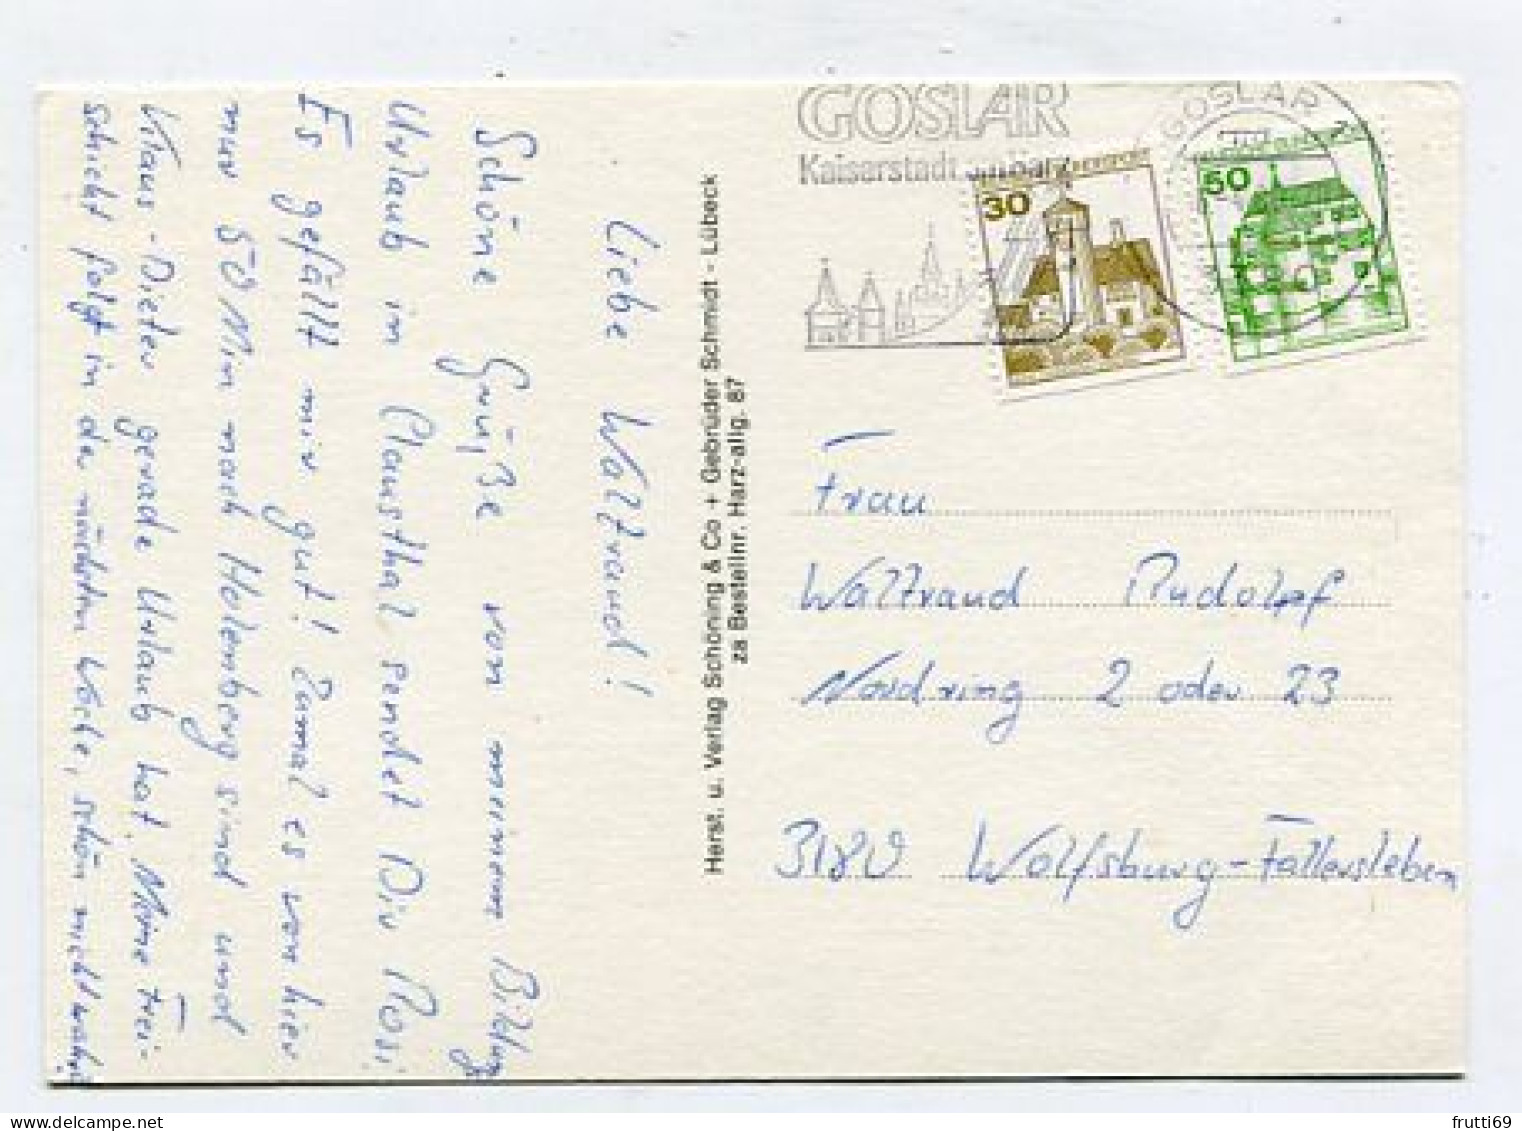 Liebe Waltraud!
Schöne Grüße von meinem Bildung
Urlaub in Clausthal sendet Dir Rosi
Es gefällt mir gut! Zumal es von hier
nur 50 Min nach Holenberg sind und
Klaus-Dieter gerade Urlaub hat. Meine Frei-
schicht folgt in der nächsten Woche, schön nicht wahr!
Herst. u. Verlag Schöning & Co + Gebrüder Schmidt - Lübeck
za Bestellnr. Harz-allg. 87
GOSLAR
Kaiserstadt am Harz
GOSLAR
30
50
Frau
Waltraud Rudolpf
Nordring 2 oder 23
3180 Wolfsburg-Fallersleben
frutti69